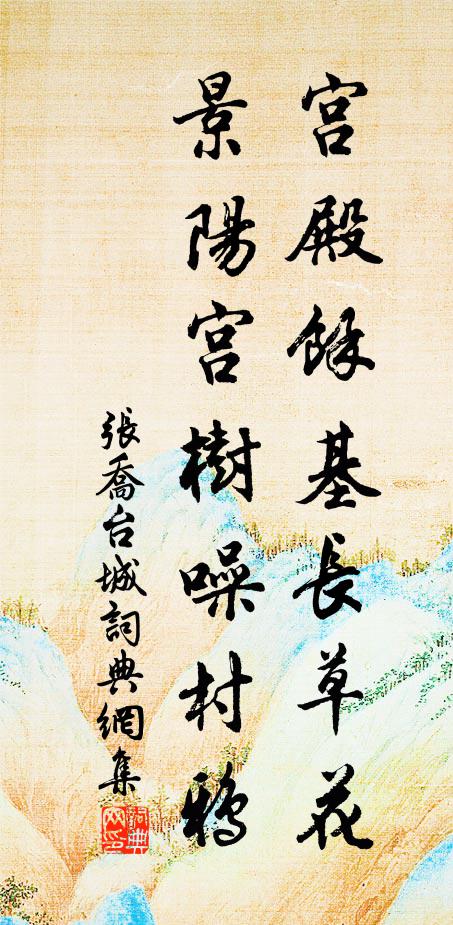 宫殿餘基長草花
景陽宫樹噪村鴉
張喬台城詞典網集
詞典